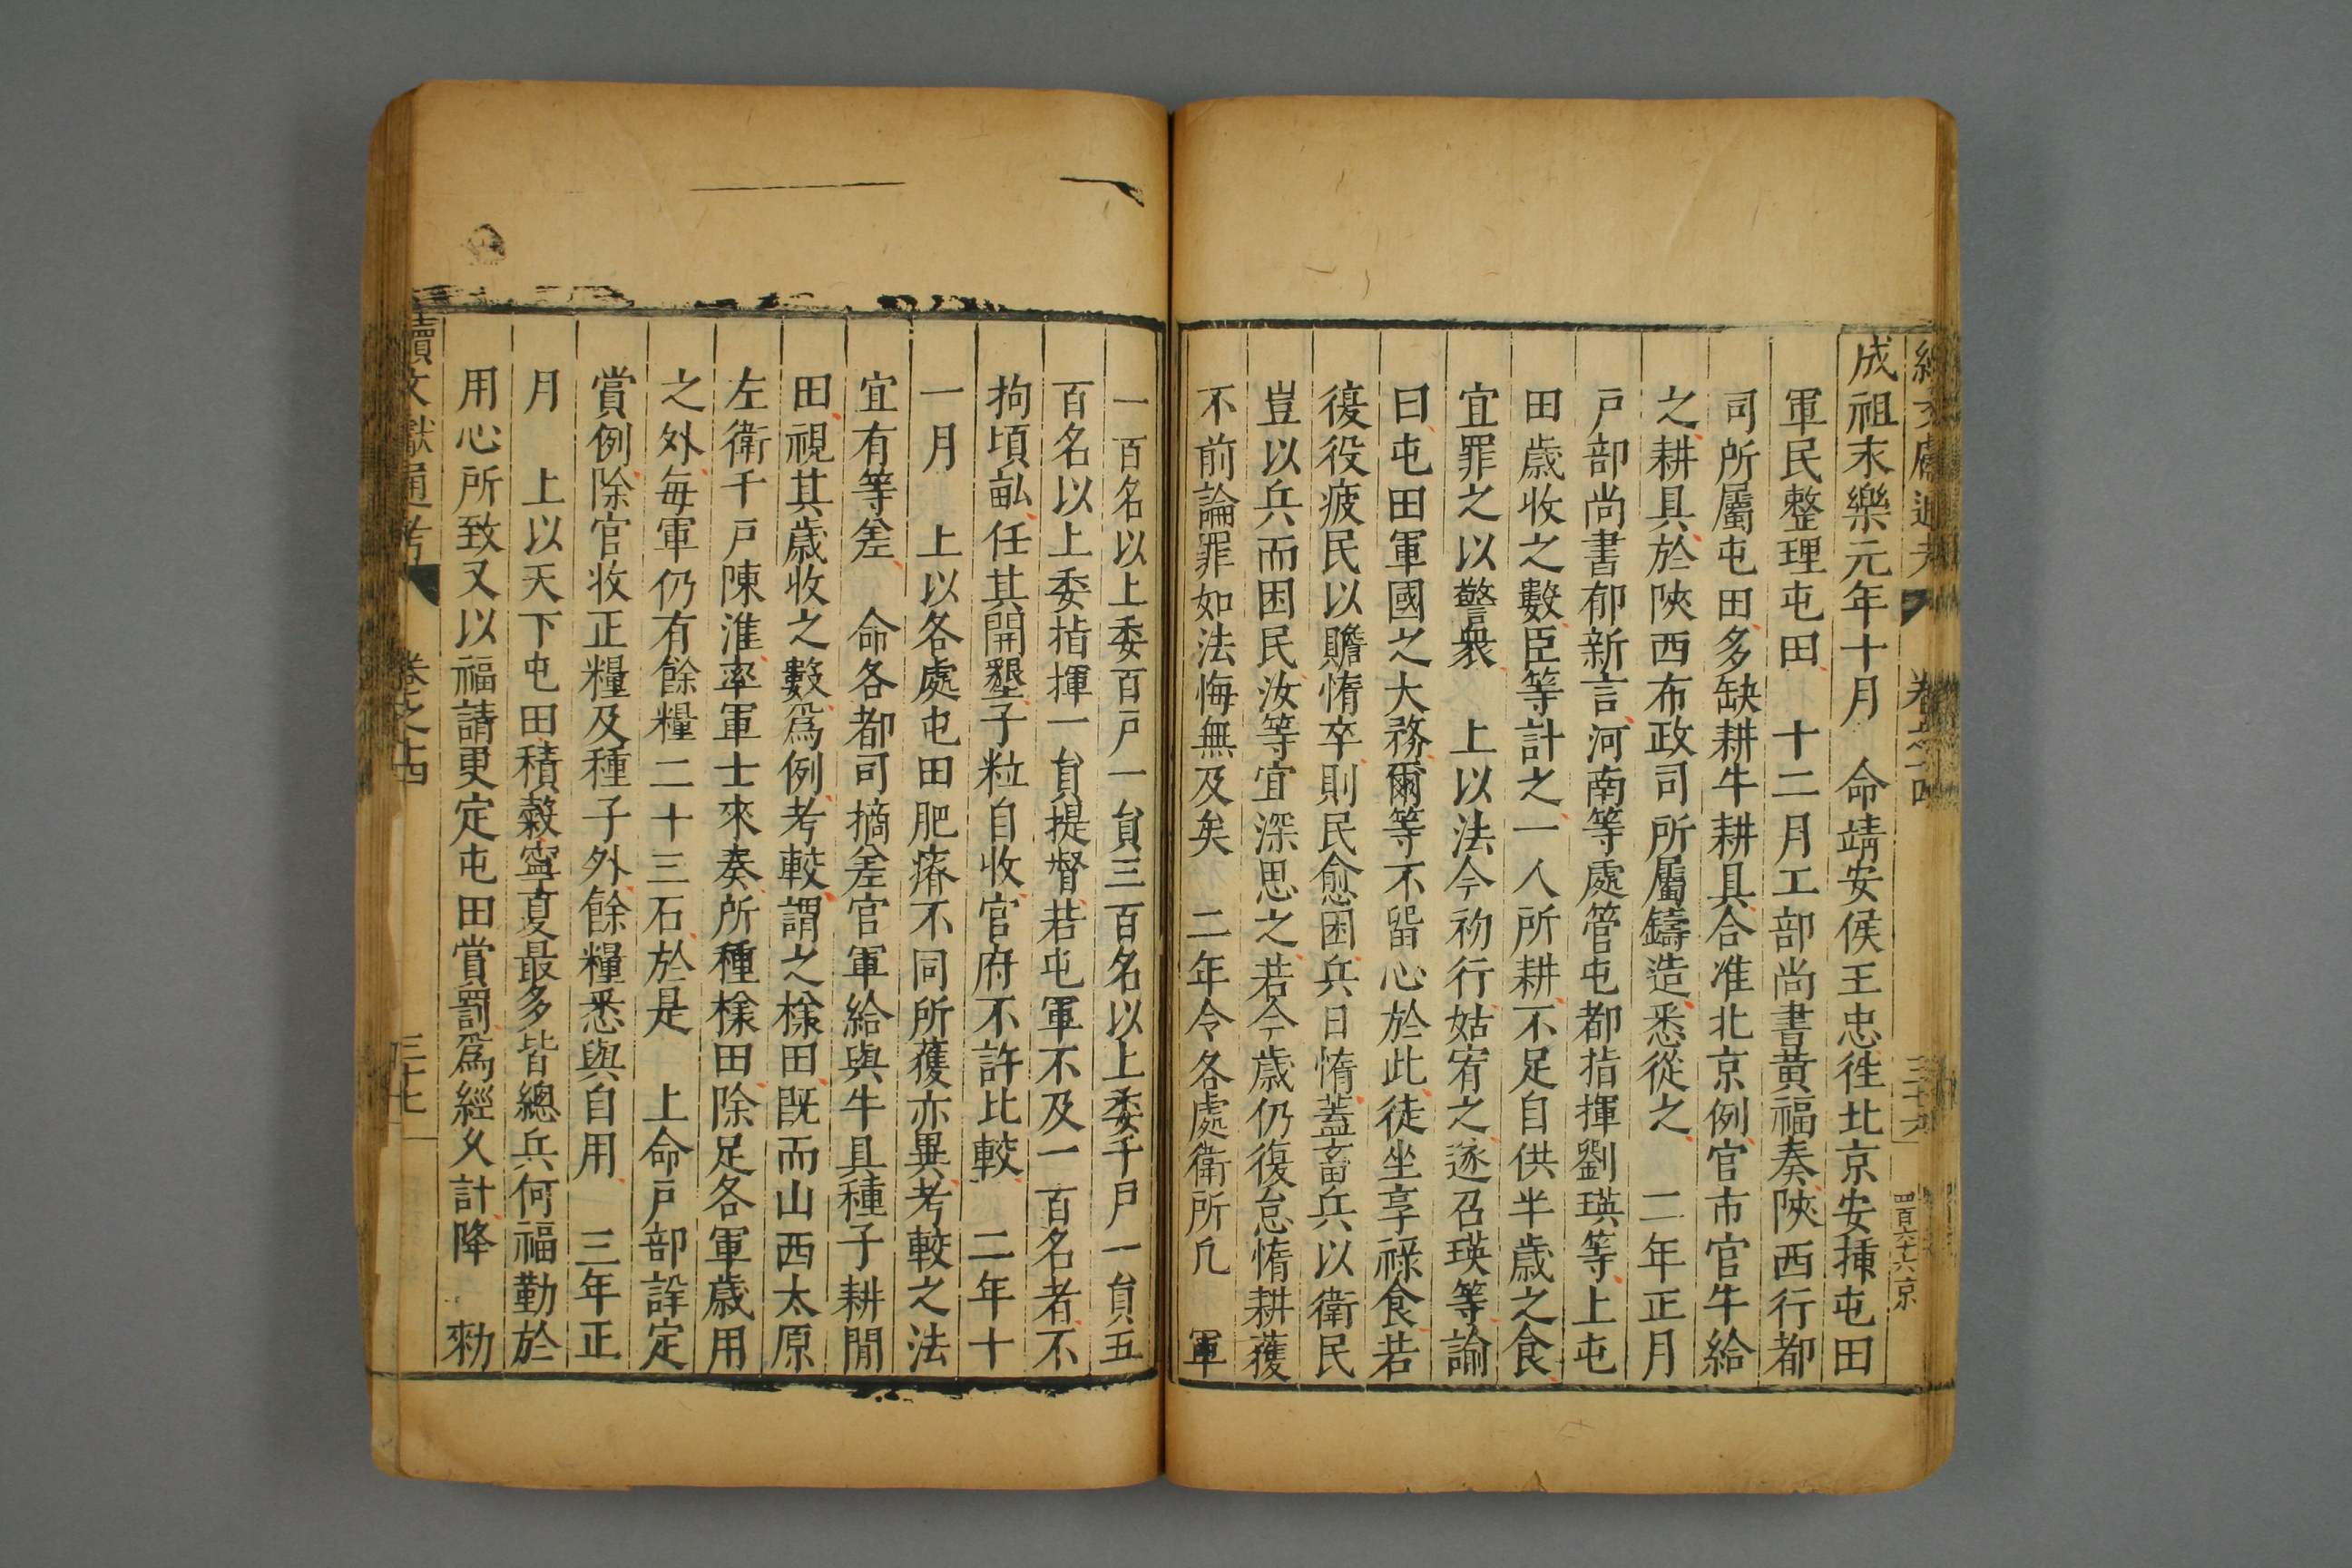 續文獻通考 卷之十四 三十六 四百六十六 京
成祖永樂元年十月 命靖安侯王忠徃北京安揷屯田
軍民整理屯田 十二月工部尚書黃福奏陝西行都
司所屬屯田多缺耕牛耕具合准北京例官市官牛給
之耕具於陝西布政司所屬鑄造悉從之 二年正月
戶部尚書郁新言河南等處管屯都指揮劉瑛等上屯
田歲收之數臣等計之一人所耕不足自供半歲之食
宜罪之以警衆 上以法令初行姑宥之遂召瑛等諭
曰屯田軍國之大務爾等不留心於此徒坐享祿食若
復役疲民以贍惰卒則民愈困兵日惰蓋畜兵以衛民
豈以兵而困民汝等宜深思之若今歲仍復怠惰耕穫
不前論罪如法悔無及矣 二年令各處衛所凡 軍
一百名以上委百戶一員三百名以上委千戶一員五
百名以上委指揮一員提督若屯軍不及一百名者不
拘頃畝任其開墾子粒自收官府不許比較 二年十
一月 上以各處屯田肥瘠不同所獲亦異考較之法
宜有等差 命各都司摘差官軍給與牛具種子耕閒
田視其歲收之數爲例考較謂之樣田旣而山西太原
左衛千戶陳淮率軍士來奏所種樣田除足各軍歲用
之外每軍仍有餘糧二十三石於是 上命戶部詳定
賞例除官收正糧及種子外餘糧悉與自用 三年正
月 上以天下屯田積穀寧夏最多皆總兵何福勤於
用心所致又以福請更定屯田賞罰爲經久計降 勑
續文獻通考 卷之十四 三十七